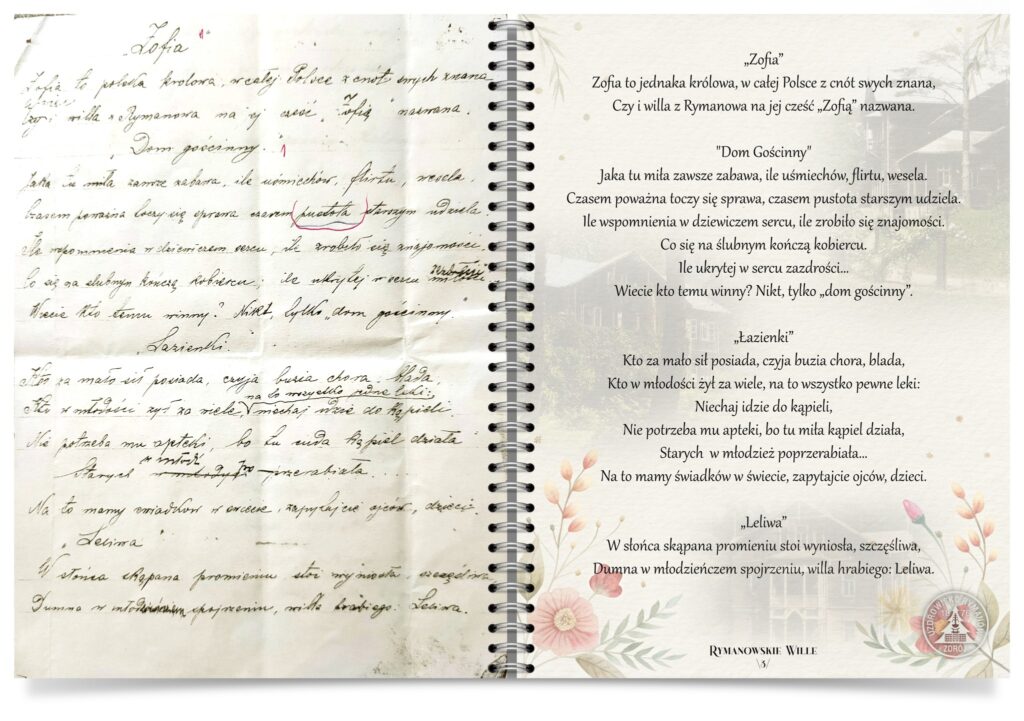 „Zofia”
Zofia to polska krolowa, w całej Polsce z cnót swych znana
Czy i willa z Rymanowa na jej cześć „Zofią” nazwana.
„Dom gościnny”
Jaka tu miła zawsze zabawa, ile uśmiechów, flirtu, wesela.
Czasem poważna toczy się sprawa czasem pustota starszym udziela.
Ile wspomnienia w dziewiczem sercu, ile zrobiło się znajomości,
Co się na ślubnym kończą kobiercu; ile ukrytej w sercu
Wiecie kto temu winny? Nikt, tylko „dom gościnny”.
„Łazienki”
Kto za mało sił posiada, czyja buzia chora, blada,
na to wszystko pewne leki:
Kto w młodości żył za wiele, niechaj idzie do kąpieli.
Nie potrzeba mu apteki, bo tu cuda kąpiel działa
Starych w młodz poprzerabiała...
Na to mamy świadków w świecie, zapytajcie ojców, dzieci.
„Leliwa”
W słońca skąpana promieniu stoi wyniosła, szczęśliwa
Dumna w młodzieńczem spojrzeniu, willa hrabiego: Leliwa.
„Zofia”
Zofia to jednaka królowa, w całej Polsce z cnót swych znana,
Czy i willa z Rymanowa na jej cześć „Zofią” nazwana.
"Dom Gościnny"
Jaka tu miła zawsze zabawa, ile uśmiechów, flirtu, wesela.
Czasem poważna toczy się sprawa, czasem pustota starszym udziela.
Ile wspomnienia w dziewiczem sercu, ile zrobiło się znajomości.
Co się na ślubnym kończą kobiercu.
Ile ukrytej w sercu zazdrości...
Wiecie kto temu winny? Nikt, tylko „dom gościnny”.
„Łazienki”
Kto za mało sił posiada, czyja buzia chora, blada,
Kto w młodości żył za wiele, na to wszystko pewne leki:
Niechaj idzie do kąpieli,
Nie potrzeba mu apteki, bo tu miła kąpiel działa,
Starych w młodzież poprzerabiała...
Na to mamy świadków w świecie, zapytajcie ojców, dzieci.
„Leliwa”
W słońca skąpana promieniu stoi wyniosła, szczęśliwa,
Dumna w młodzieńczem spojrzeniu, willa hrabiego: Leliwa.
Rymanowskie Wille
\3/
UZDROWISKO RYMANÓW
1876
ZDRÓJ